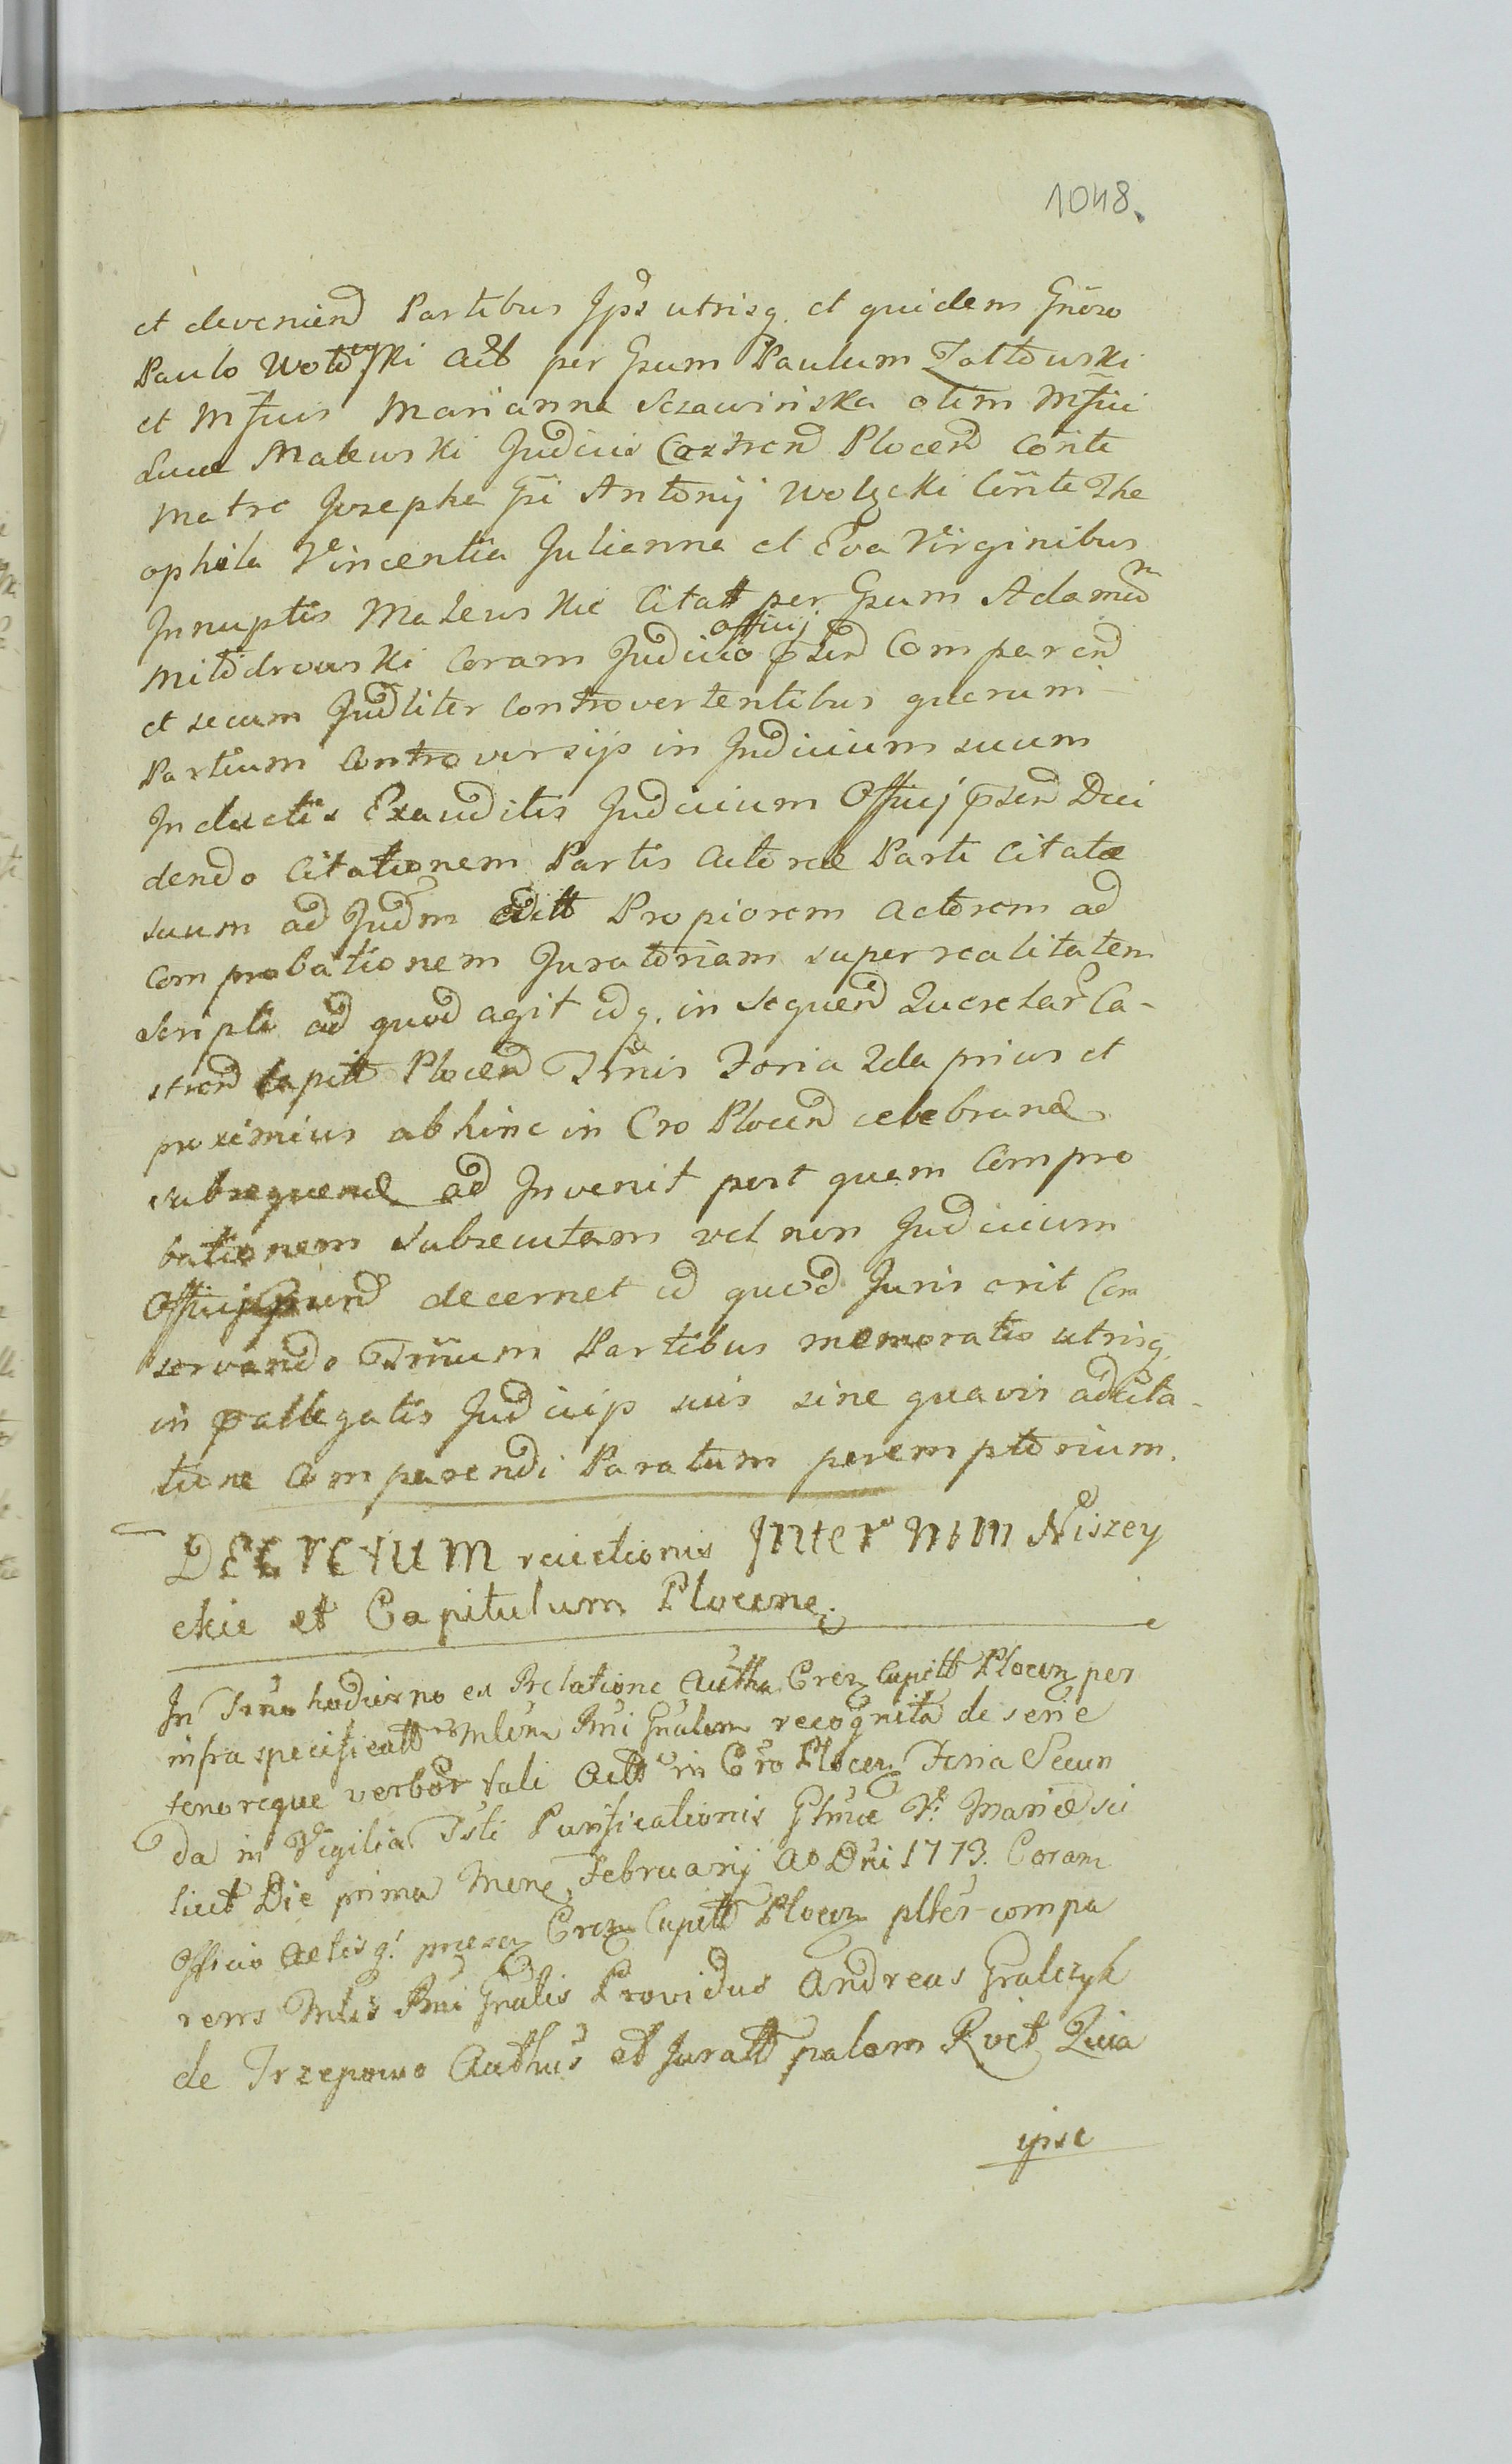 1048.
et devenien Partibus Ips utrisq. et quidem Gnoso
Paulo Wolowski Act per Gsum Paulum Zaltowski
et Mfius Marianna Szawinska olim Mfici
Lucae Malewski Judicis Castren Plocen Conte
Matre Josepha Gsi Antonij Wolycki Conte The
ophila Vincentia Julianna et Eva Virginibus
Innuptis Malewskie Citatt per Gsum Adamum
Milodrowski Coram Judicio officij psen Comparen
et secum Judliter Controvertentibus quarum
Partium Controversijs in Judicium suum
Inductis Exauditis Judicium Officij psen Deci
dendo Citationem Partis Actoreae Parti Citatae
suum ad Judm Propiorem Actorem ad
comprobationem Juratoriam super realitatem
scripti ad quod agit idq. in sequen Querelar Ca-
stren Capitt Plocen Trnis Feria 2da prius et
proximius abhinc in Cro Plocen celebrand
subsequend ad Invenit post quam Compro
bationem subsecutam vel non Judicium
Officij decernet id quod Juris erit Con
servando Trnum Partibus memoratis utrisq.
in pallegatis Judicijs suis sine quavis adcita-
tione Comparendi Paratum peremptorium.
DECRETUM reiectionis Inter Niszcy
ckie et Capitulum Plocense
In Trno hodierno ex Relatione Autha Cren Capitt Plocen per
infra specificatt Mlem Rni Gnalem recognita de serie
tenoreque verbor tali Actt in Cro Plocen Feria Secun
da in Vigilia Fsti Purificationis Glmae V. Mariae sci
licet Die prima Mens Februarij Ao Dni 1773. Coram
Officio Actisq. praesen Cren Capitt Plocen plter compa
rens Mlis Rni Gnalis Providus Andreas Gralczyk
de Trzepowo Authus et Juratt palam Rvit Quia
ipse